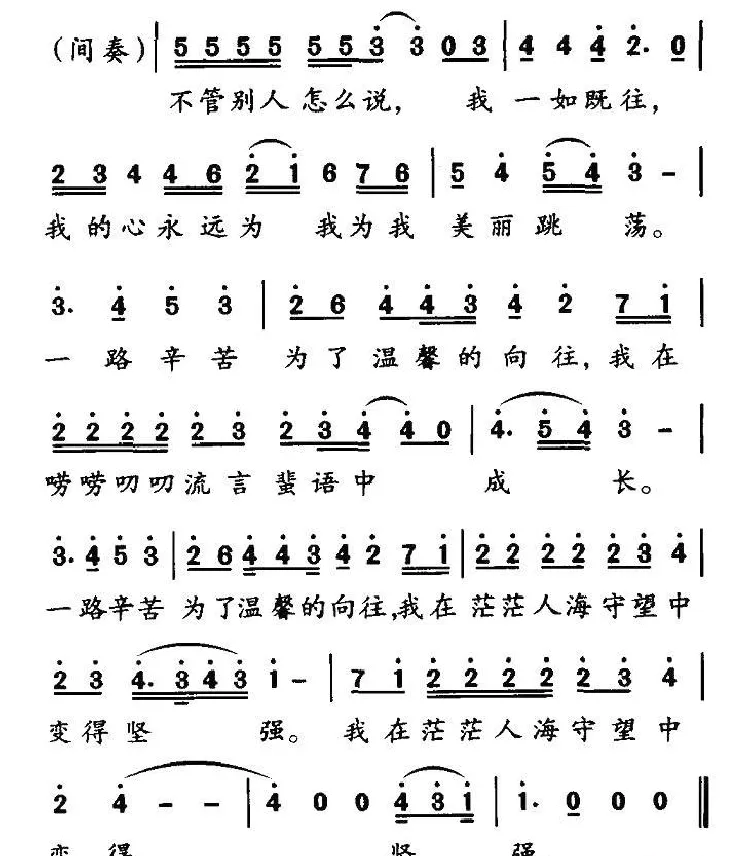 （间奏） 5 5 5 5 5 5 3 3 0 3 | 4 4 4 2. 0 |
不管别人怎么说， 我一如既往，
2 3 4 4 6 2 1 6 7 6 | 5 4 5 4 3 - |
我的心永远为 我为我 美丽跳 荡。
3. 4 5 3 | 2 6 4 4 3 4 2 7 1 |
一路辛苦 为了温馨的向往，我在
2 2 2 2 2 3 2 3 4 4 0 | 4. 5 4 3 - |
唠唠叨叨流言蜚语中 成 长。
3. 4 5 3 | 2 6 4 4 3 4 2 7 1 | 2 2 2 2 2 3 4 |
一路辛苦 为了温馨的向往，我在茫茫人海守望中
2 3 4. 3 4 3 1 - | 7 1 2 2 2 2 2 3 4 |
变得坚 强。 我在茫茫人海守望中
2 4 - - | 4 0 0 4 3 1 | 1. 0 0 0 ‖
变得 坚 强